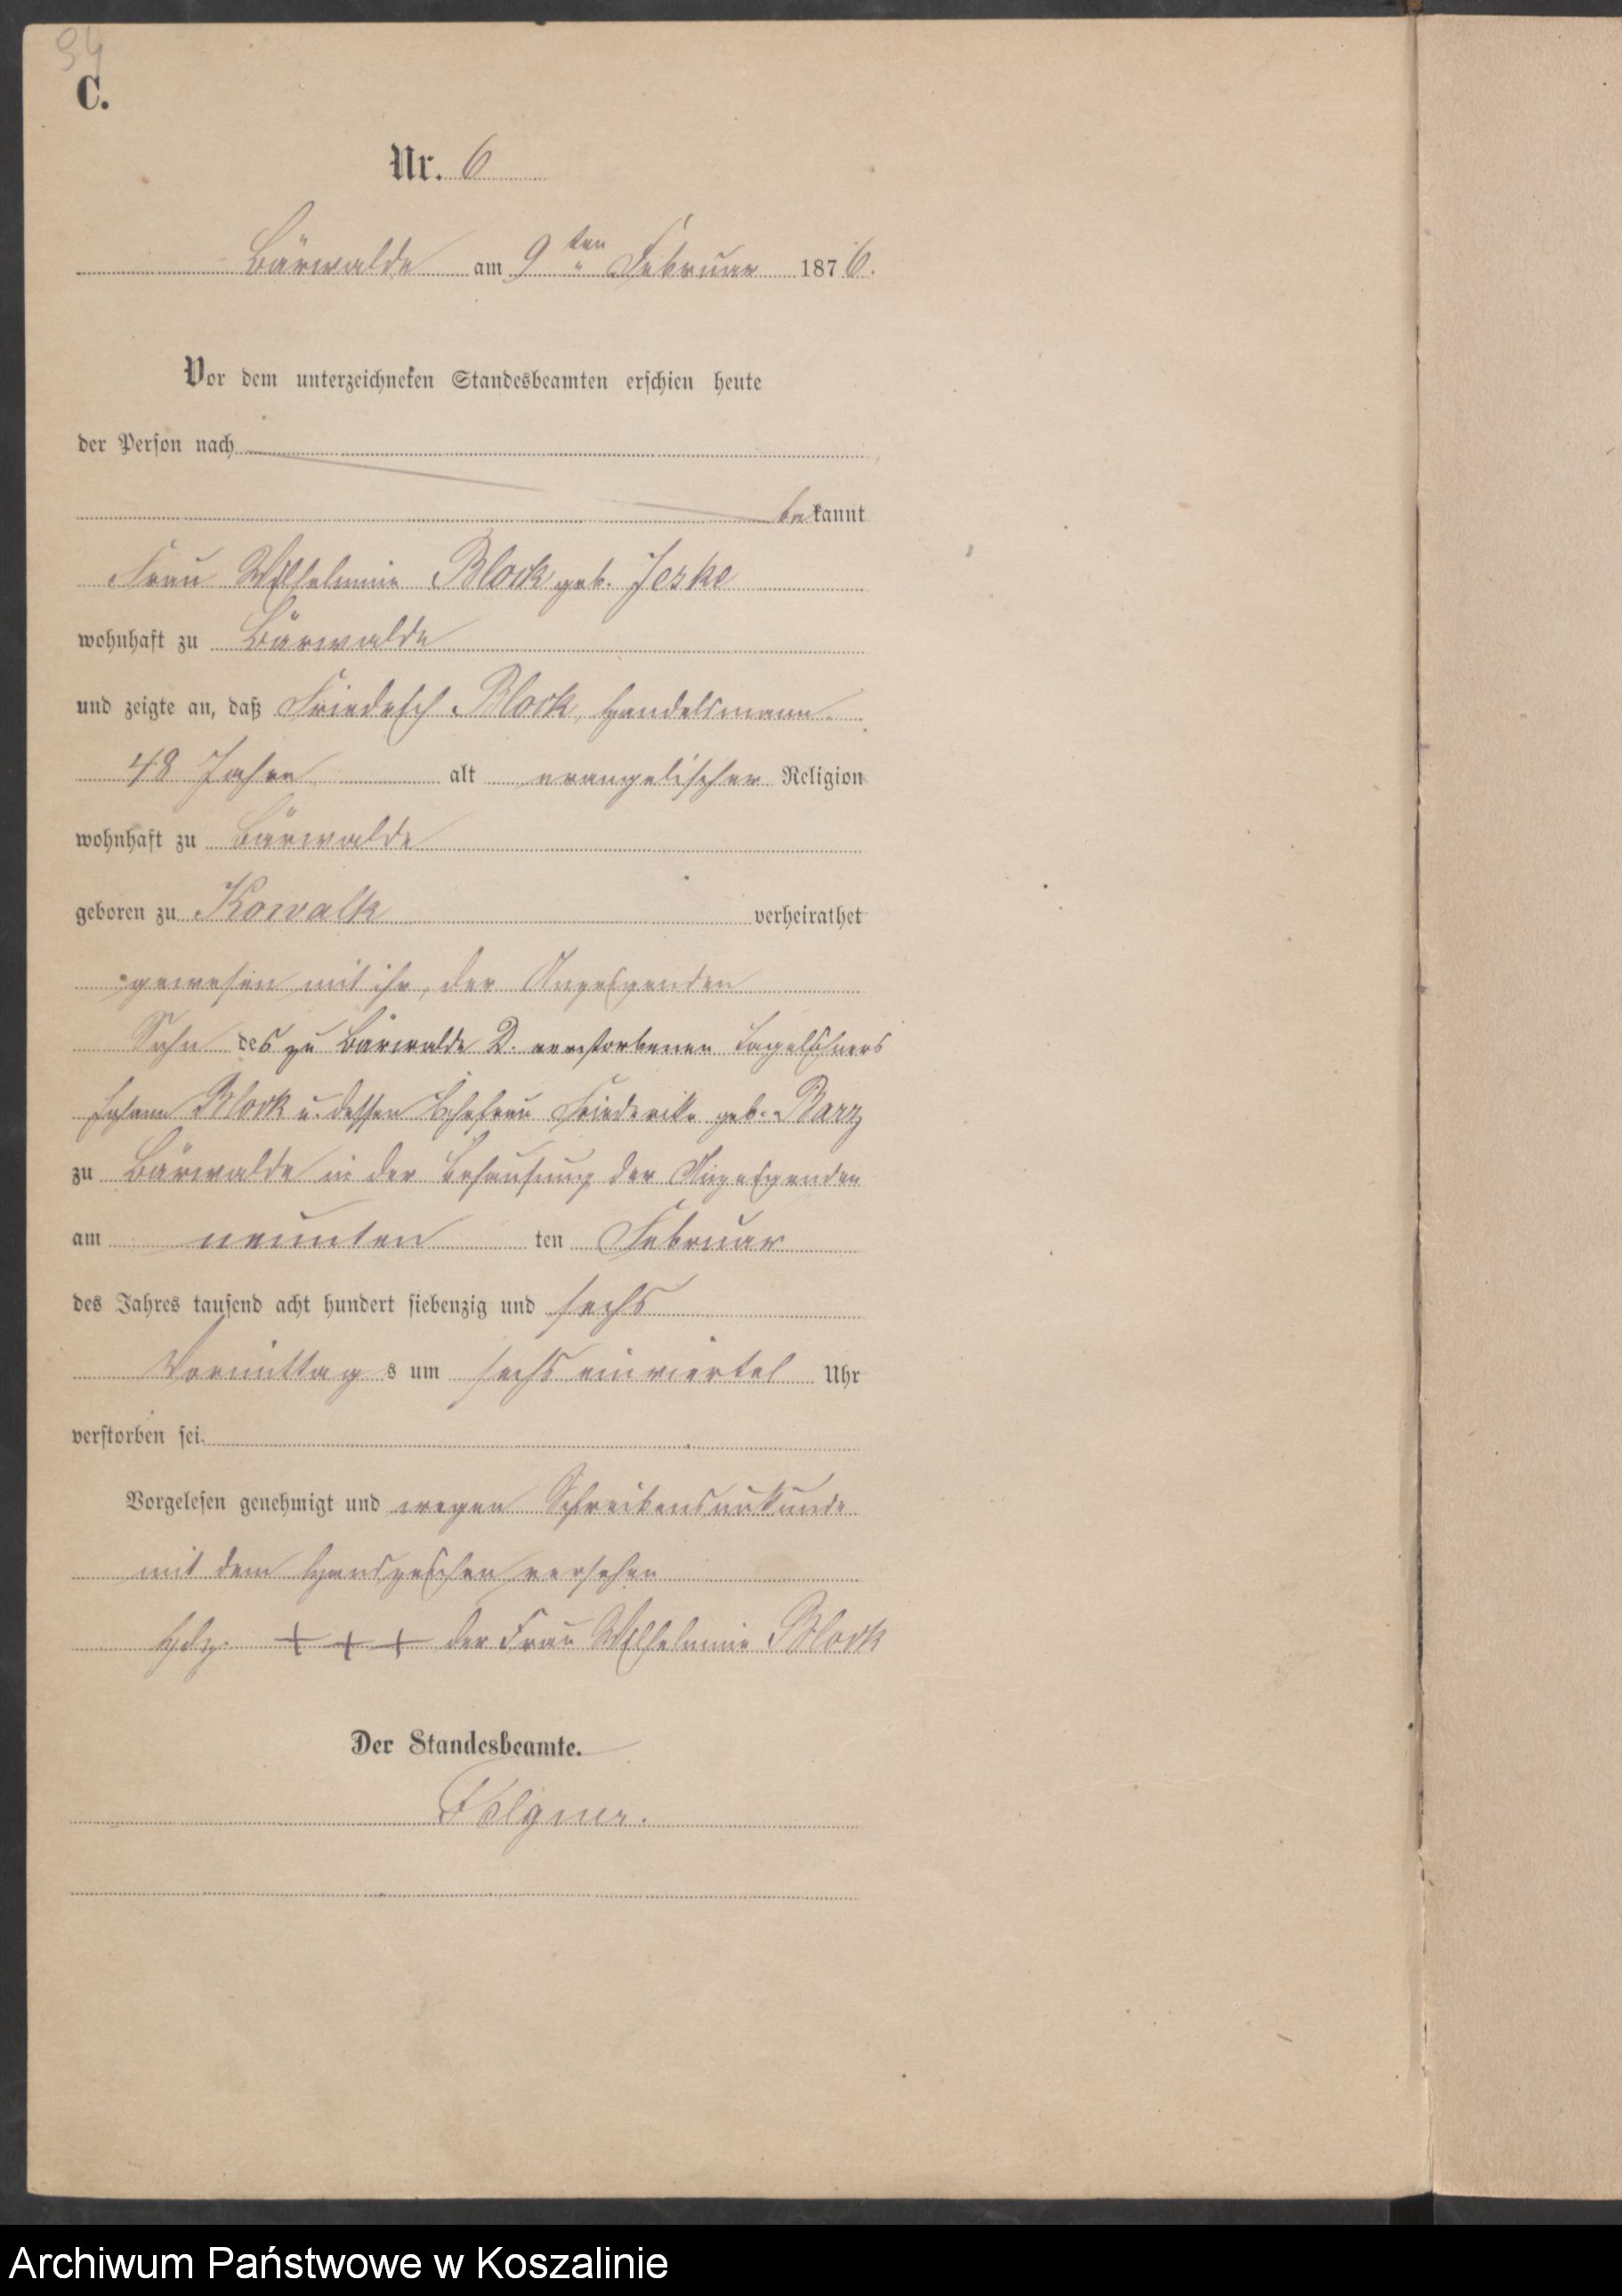 94
C.
Nr. 6
Bärwalde am 9ten Februar 1876.
Vor dem unterzeichneten Standesbeamten erschien heute
der Person nach
bekannt
Frau Wilhelmine Block geb. Jeske
wohnhaft zu Bärwalde
und zeigte an, daß Friedrich Block, Handelsmann
48 Jahre alt evangelischer Religion
wohnhaft zu Bärwalde
geboren zu Kowalk verheirathet
gewesen mit ihr, der Anzeigenden
Sohn des zu Bärwalde D. verstorbenen Tagelöhners
Johann Block u. dessen Ehefrau Friederike geb. Barz
zu Bärwalde in der Behausung der Anzeigenden
am neunten ten Februar
des Jahres tausend acht hundert siebenzig und sechs
Vormittag s um sechs einviertel Uhr
verstorben sei.
Vorgelesen genehmigt und wegen Schreibensunkunde
mit dem Handzeichen versehen
Hdz. + + + der Frau Wilhelmine Block
Der Standesbeamte.
Felgner.
Archiwum Państwowe w Koszalinie